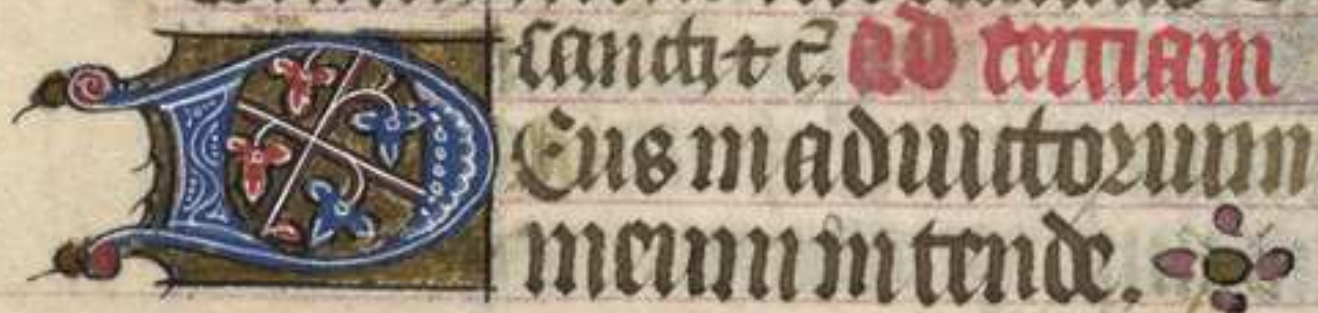 sancti ⁊ c̄. ad terciam
Deus in adiuitorium
meum in tende.